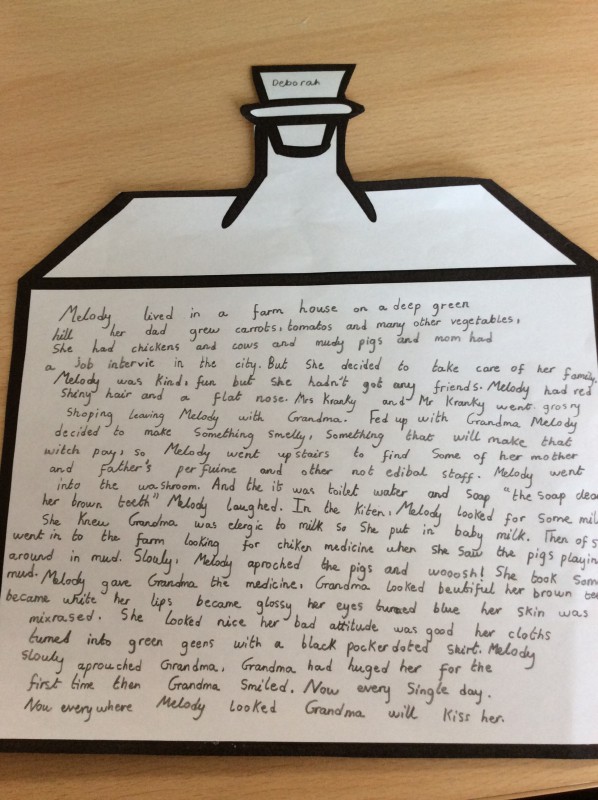 Deborah
Melody lived in a farm house on a deep green
hill her dad grew carrots, tomatos and many other vegetables,
She had chickens and cows and mudy pigs and mom had
a Job intervie in the city. But She decided to take care of her family.
Melody was kind, fun but She hadn't got any friends. Melody had red
Shiny hair and a flat nose. Mrs Kranky and Mr Kranky went grosry
Shoping leaving Melody with Grandma. Fed up with Grandma Melody
decided to make Something Smelly, Something that will make that
witch pay, so Melody went upstairs to find Some of her mother
and father's perfuime and other not edibal staff. Melody went
into the washroom. And the it was toilet water and Soap "the Soap
her brown teeth" Melody laughed. In the Kiten, Melody looked for Some
She Knew Grandma was clergic to milk So She put in baby milk. Then of
went in to the farm looking for chiken medicine when She Saw the pigs
around in mud. Slouly, Melody aproched the pigs and woosh! She took
mud. Melody gave Grandma the medicine, Grandma looked beutiful her brown
became white her lips became glossy her eyes turned blue her skin was
mixrased. She looked nice her bad attitude was good her cloths
turned into green geens with a black pocker doted skirt. Melody
Slouly aprouched Grandma, Grandma had huged her for the
first time then Grandma Smiled. Now every Single day.
Now everywhere Melody Looked Grandma will Kiss her.